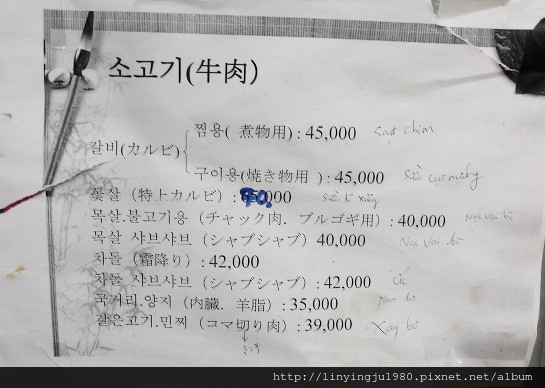 소고기(牛肉)
갈비(カルビ)
찜용( 煮物用) : 45,000
구이용(焼き物用 ) : 45,000
꽃살 (特上カルビ) : 70,000
목살.불고기용 (チャック肉. ブルゴギ用) : 40,000
목살 샤브샤브 (シャブシャブ) 40,000
차돌 (霜降り) : 42,000
차돌 샤브샤브 (シャブシャブ) : 42,000
국거리.양지 (内臓. 羊脂) : 35,000
갈은고기.민찌 (コマ切り肉) : 39,000
Xay bò
http://linyingju1980.pixnet.net/album